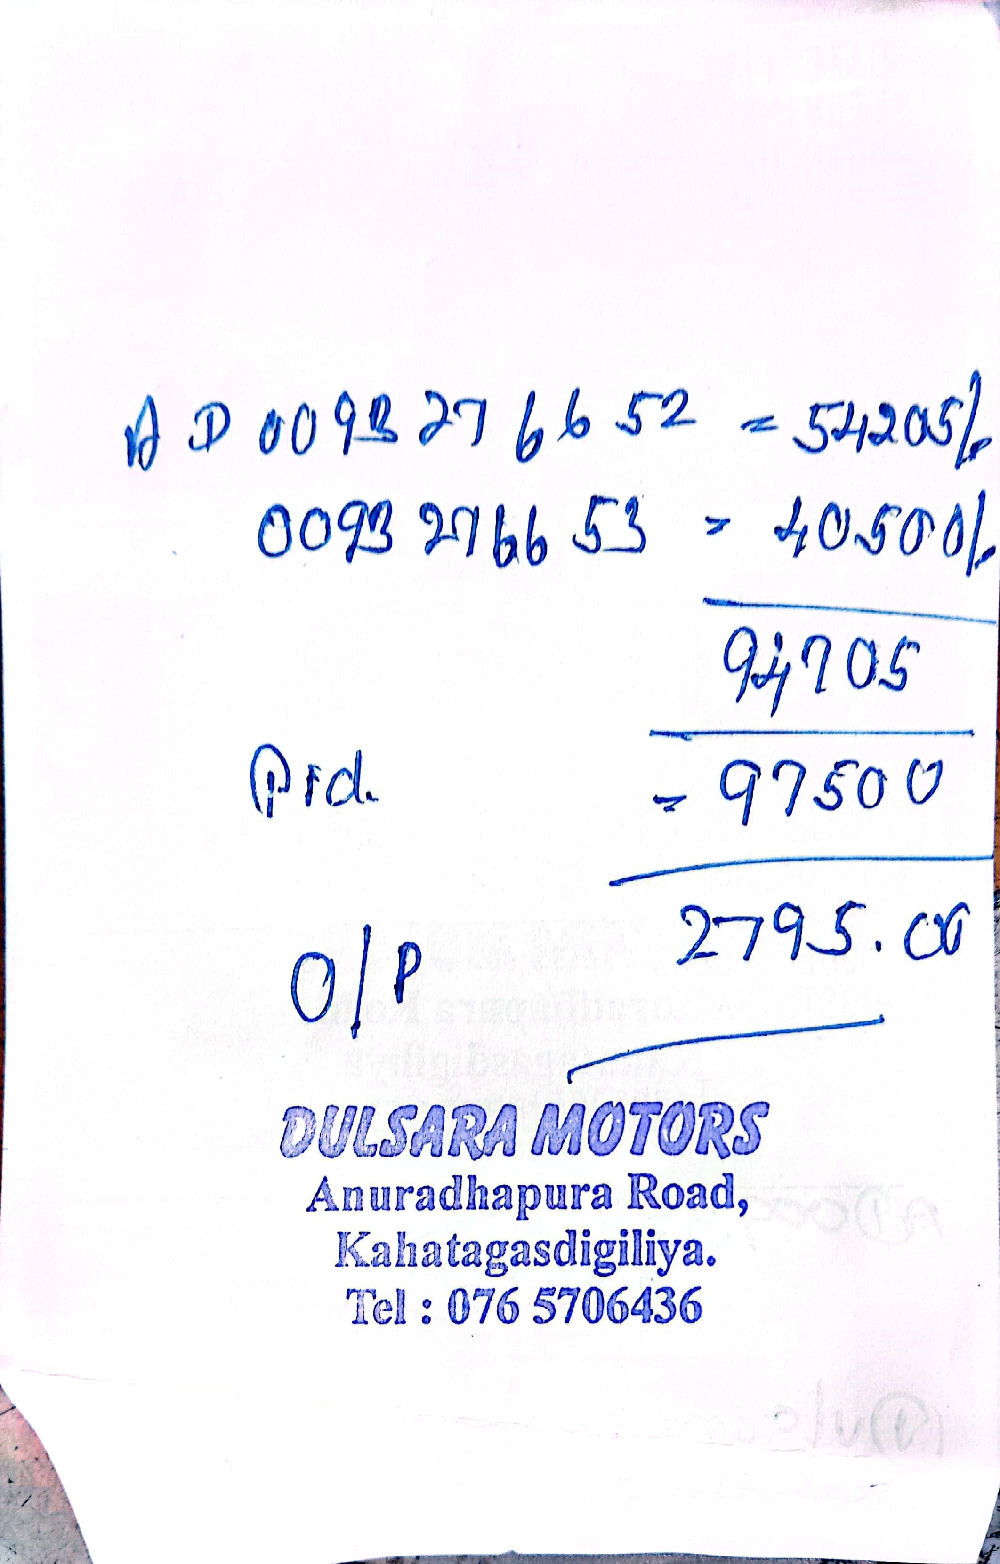 AD 0093276652 = 54205/.
0093276653 = 40500/.
94705
Pid. = 97500
O/P 2795.00
DULSARA MOTORS
Anuradhapura Road,
Kahatagasdigiliya.
Tel : 076 5706436